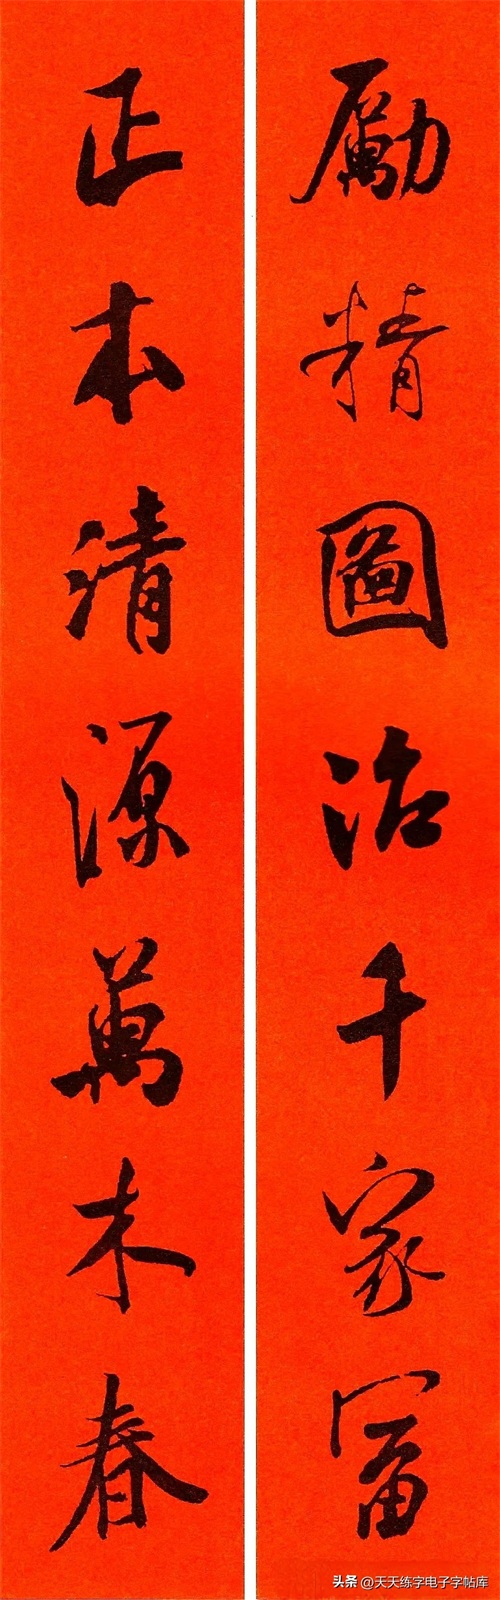 勵精圖治千家富
正本清源萬木春
头条 @天天练字电子字帖库